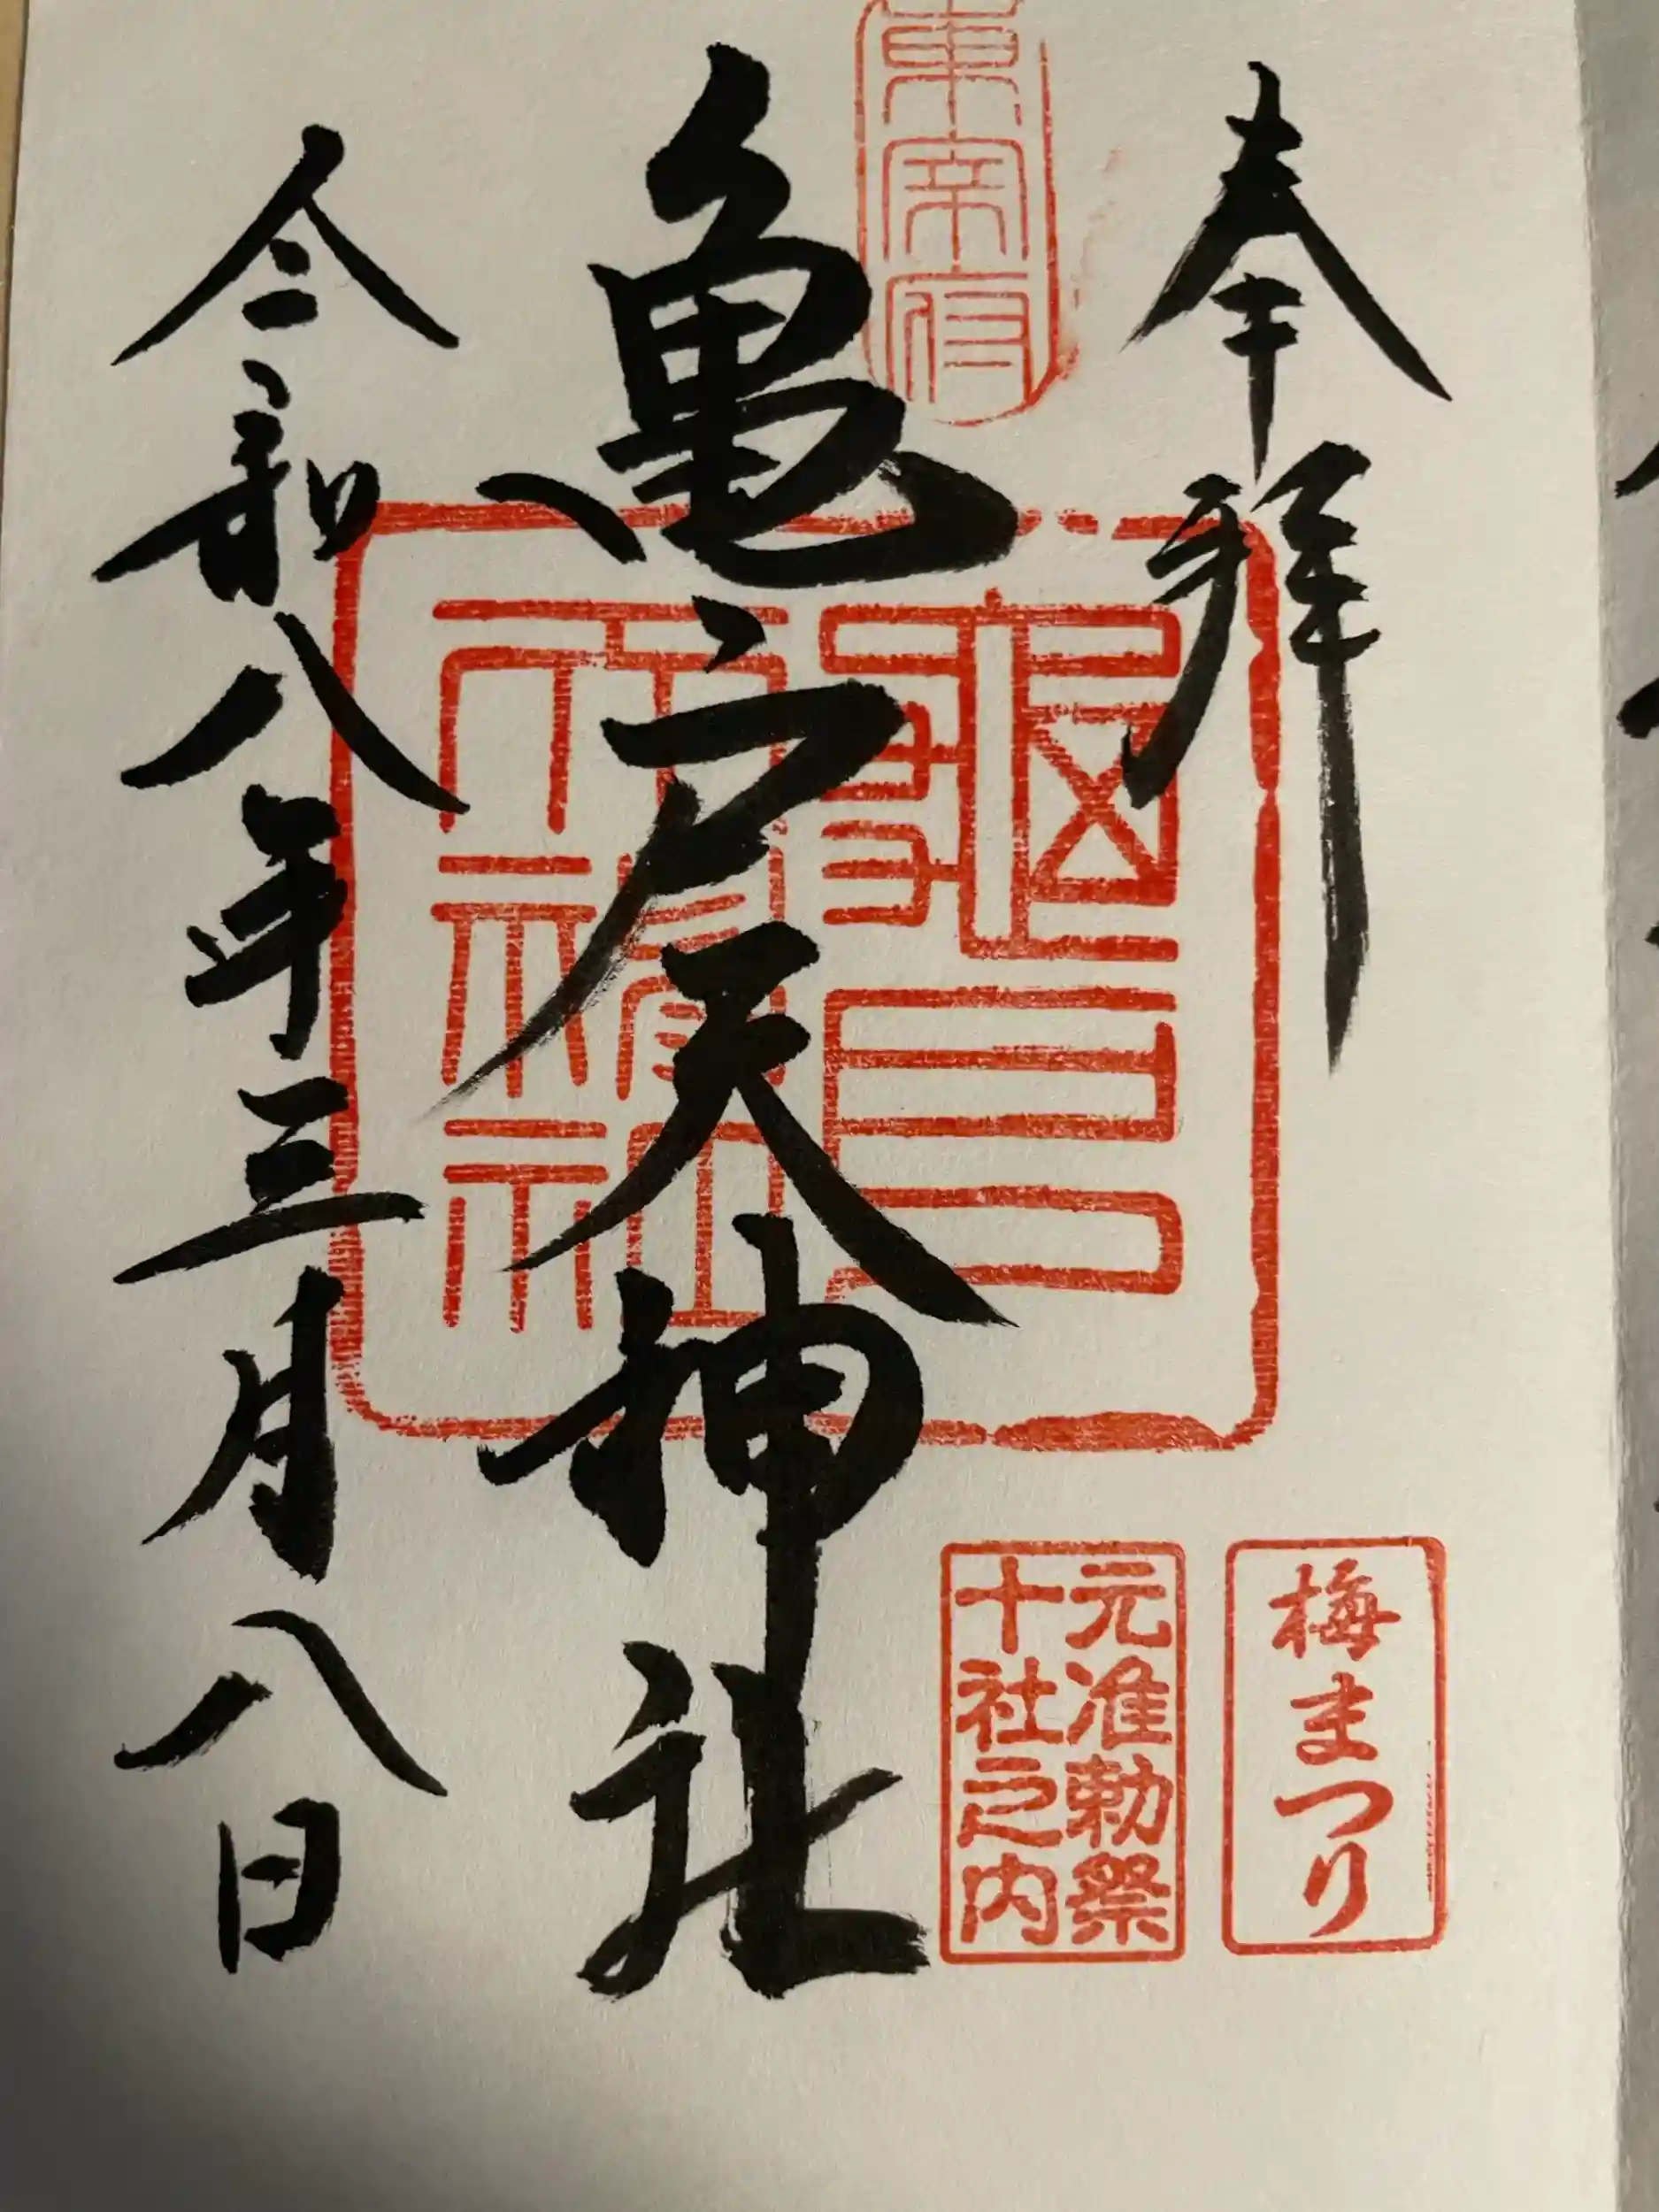 奉拝
梅まつり
東宰府
亀戸天神社
龜戸
天神社
元准勅祭
十社之内
令和八年三月八日